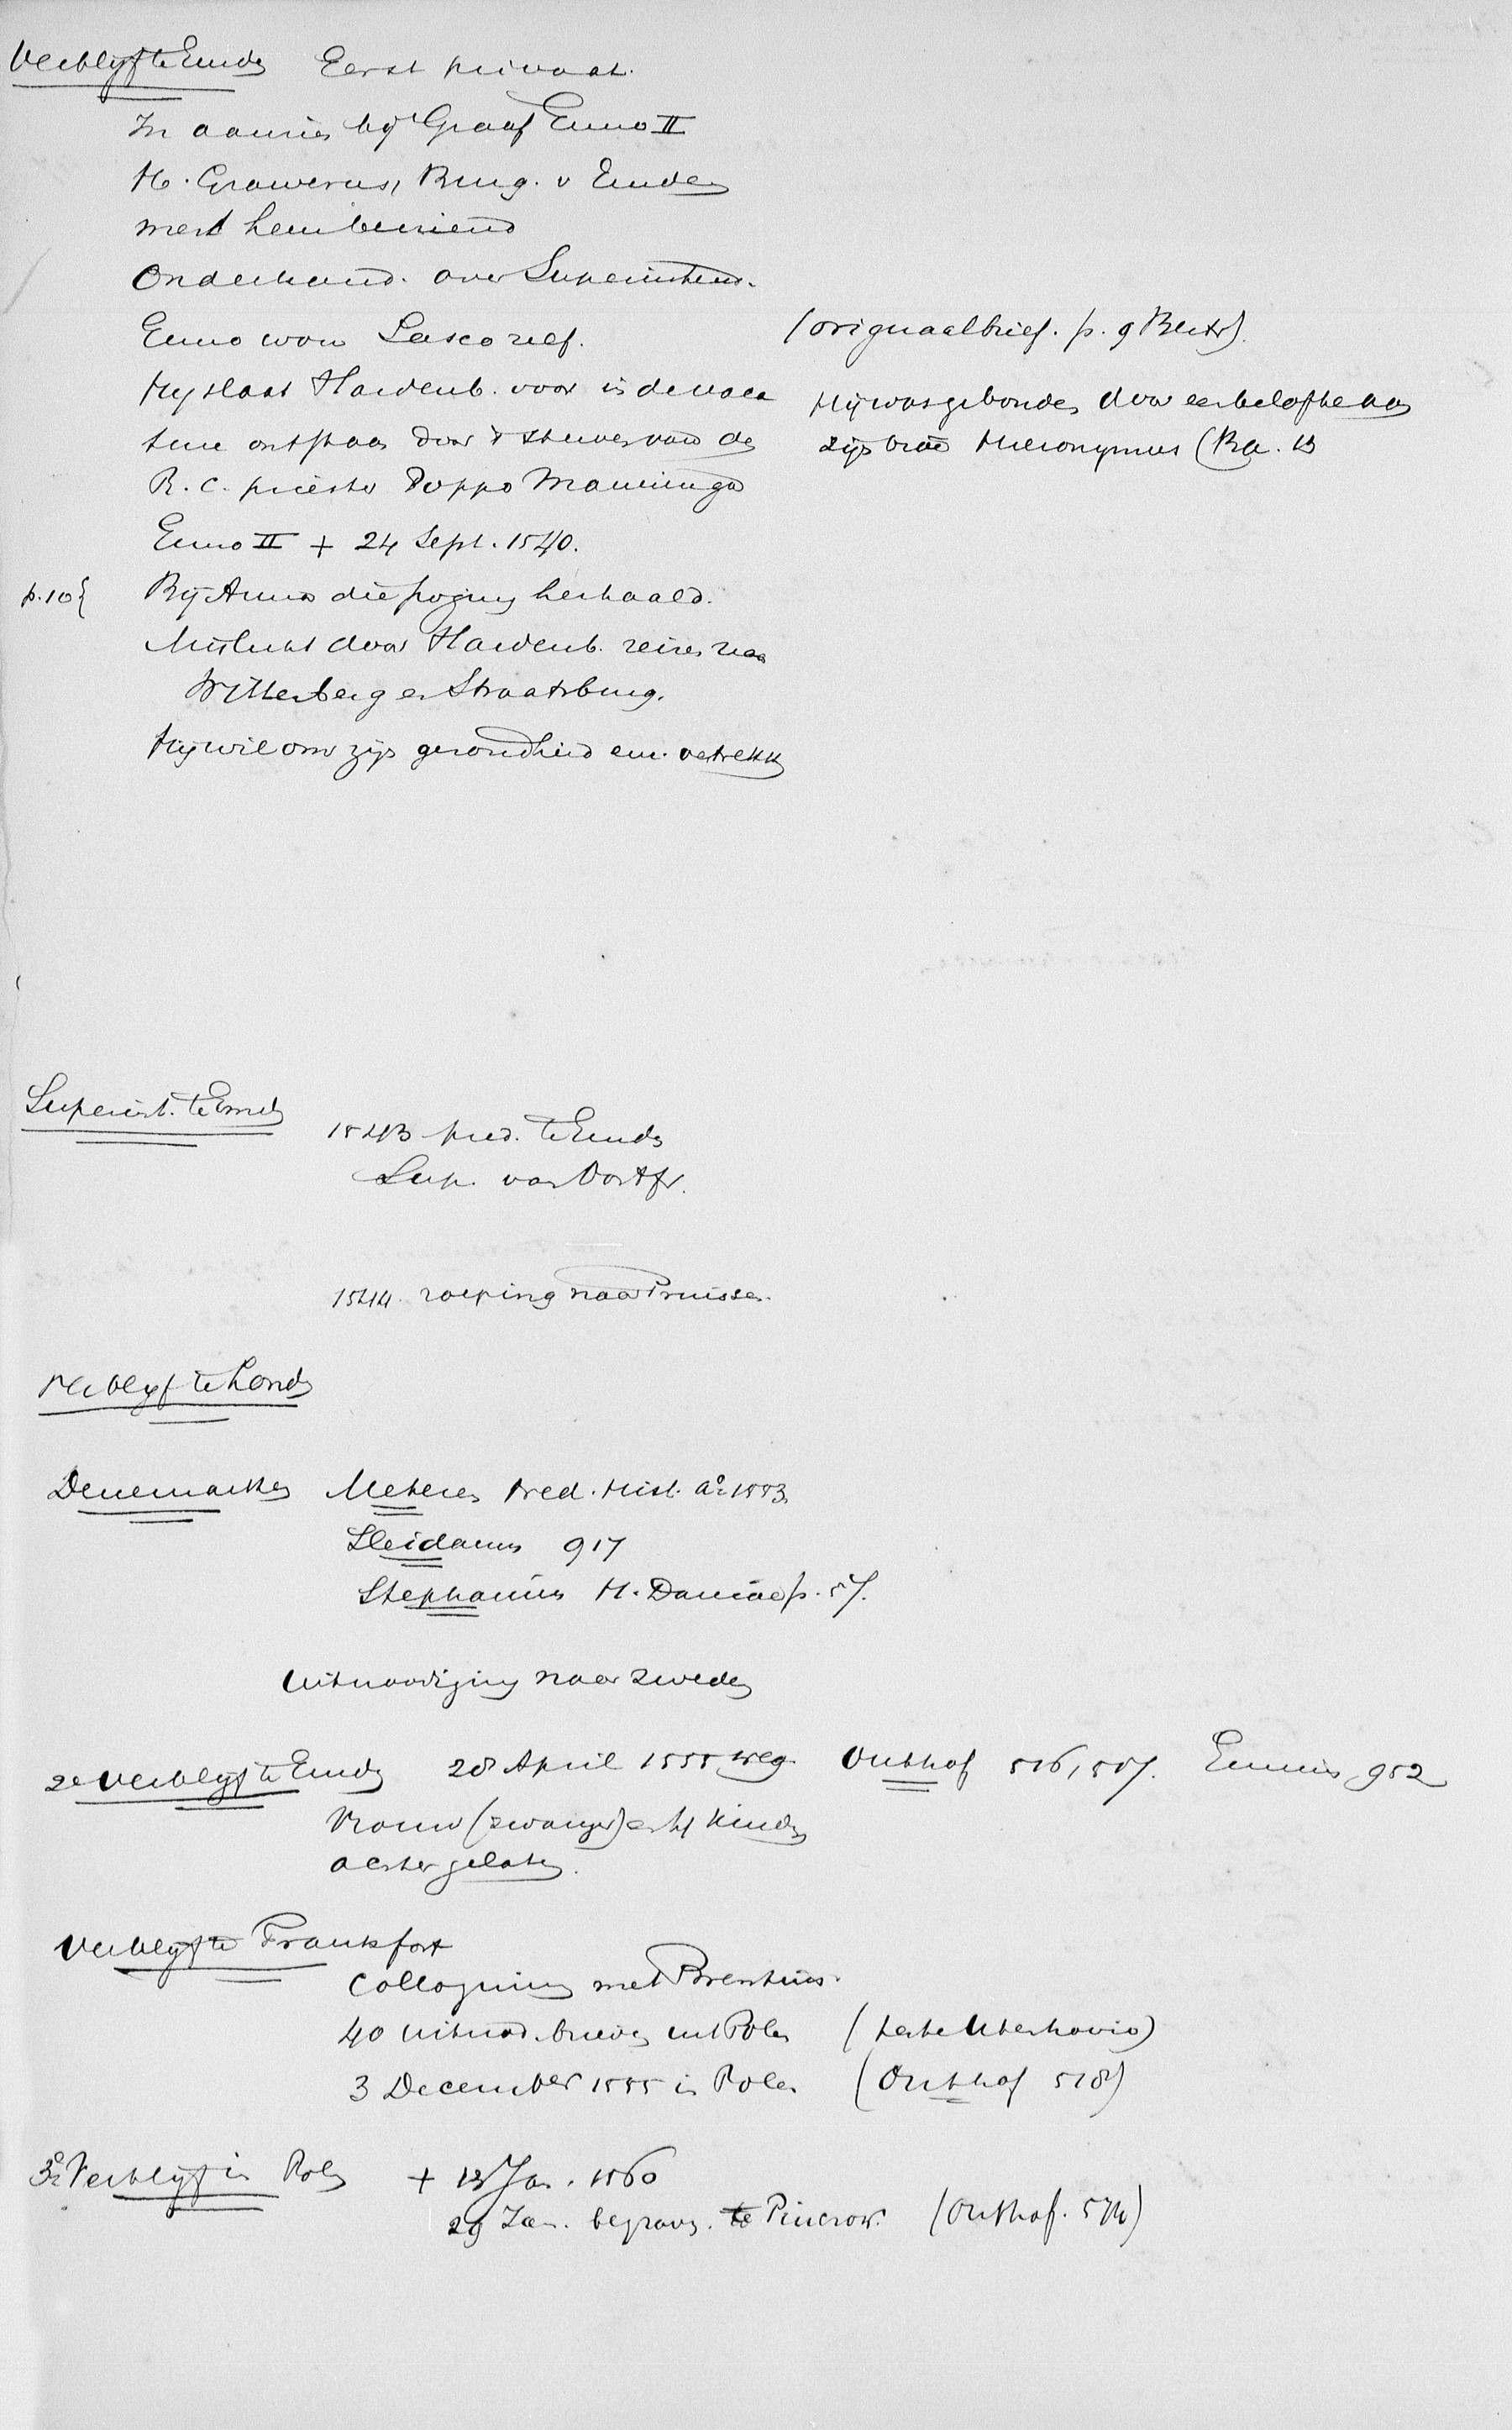 Verblijf te Emden Eerst privaat.
In aanzien bij Graaf Enno II
H. Grawerus, Burg. v Emden
werd hem bevriend
Onderhand. over Superintend.
Enno won Lasco ref. (origineelbrief. p. 9 Berts).
Hij slaat Hardenb. voor in de vaca Hij was gebonden door een belofte aan
ture ontstaan door 't sterven van de zijn broer Hieronymus (Ba. 13
R.C. priester Poppo Manninga
Enno II + 24 Sept. 1540.
p. 10{ Bij Anna die poging herhaald.
Mislukt door Hardenb. reizen naar
Wittenberg en Straatsburg.
Hij wil om zijn gezondheid em. vertrekken
Superint. te Emden
1543 pred. te Emden
Sup. van Oostfr.
1544 roeping naar Pruissen.
Verblijf te Londen
Denemarken Meteren Ned. Hist. ao 1553.
Sleidanus 917
Stephanius H. Daniae p. 57.
Uitnoodiging naar Zweden
2e Verblijf te Emden 28 April 1555 weg. Outhof 516, 517. Emmius 952
Vrouw (zwanger) en 4 kinderen
achtergelaten.
Verblijf te Frankfort
Colloquium met Brentius.
40 uitnod. brieven uit Polen (teste Utenhovio)
3 December 1555 in Polen (Outhof 518)
3e Verblijf in Polen + 13 Jan. 1560
29 Jan. begraven. te Pinczow. (Outhof. 574)